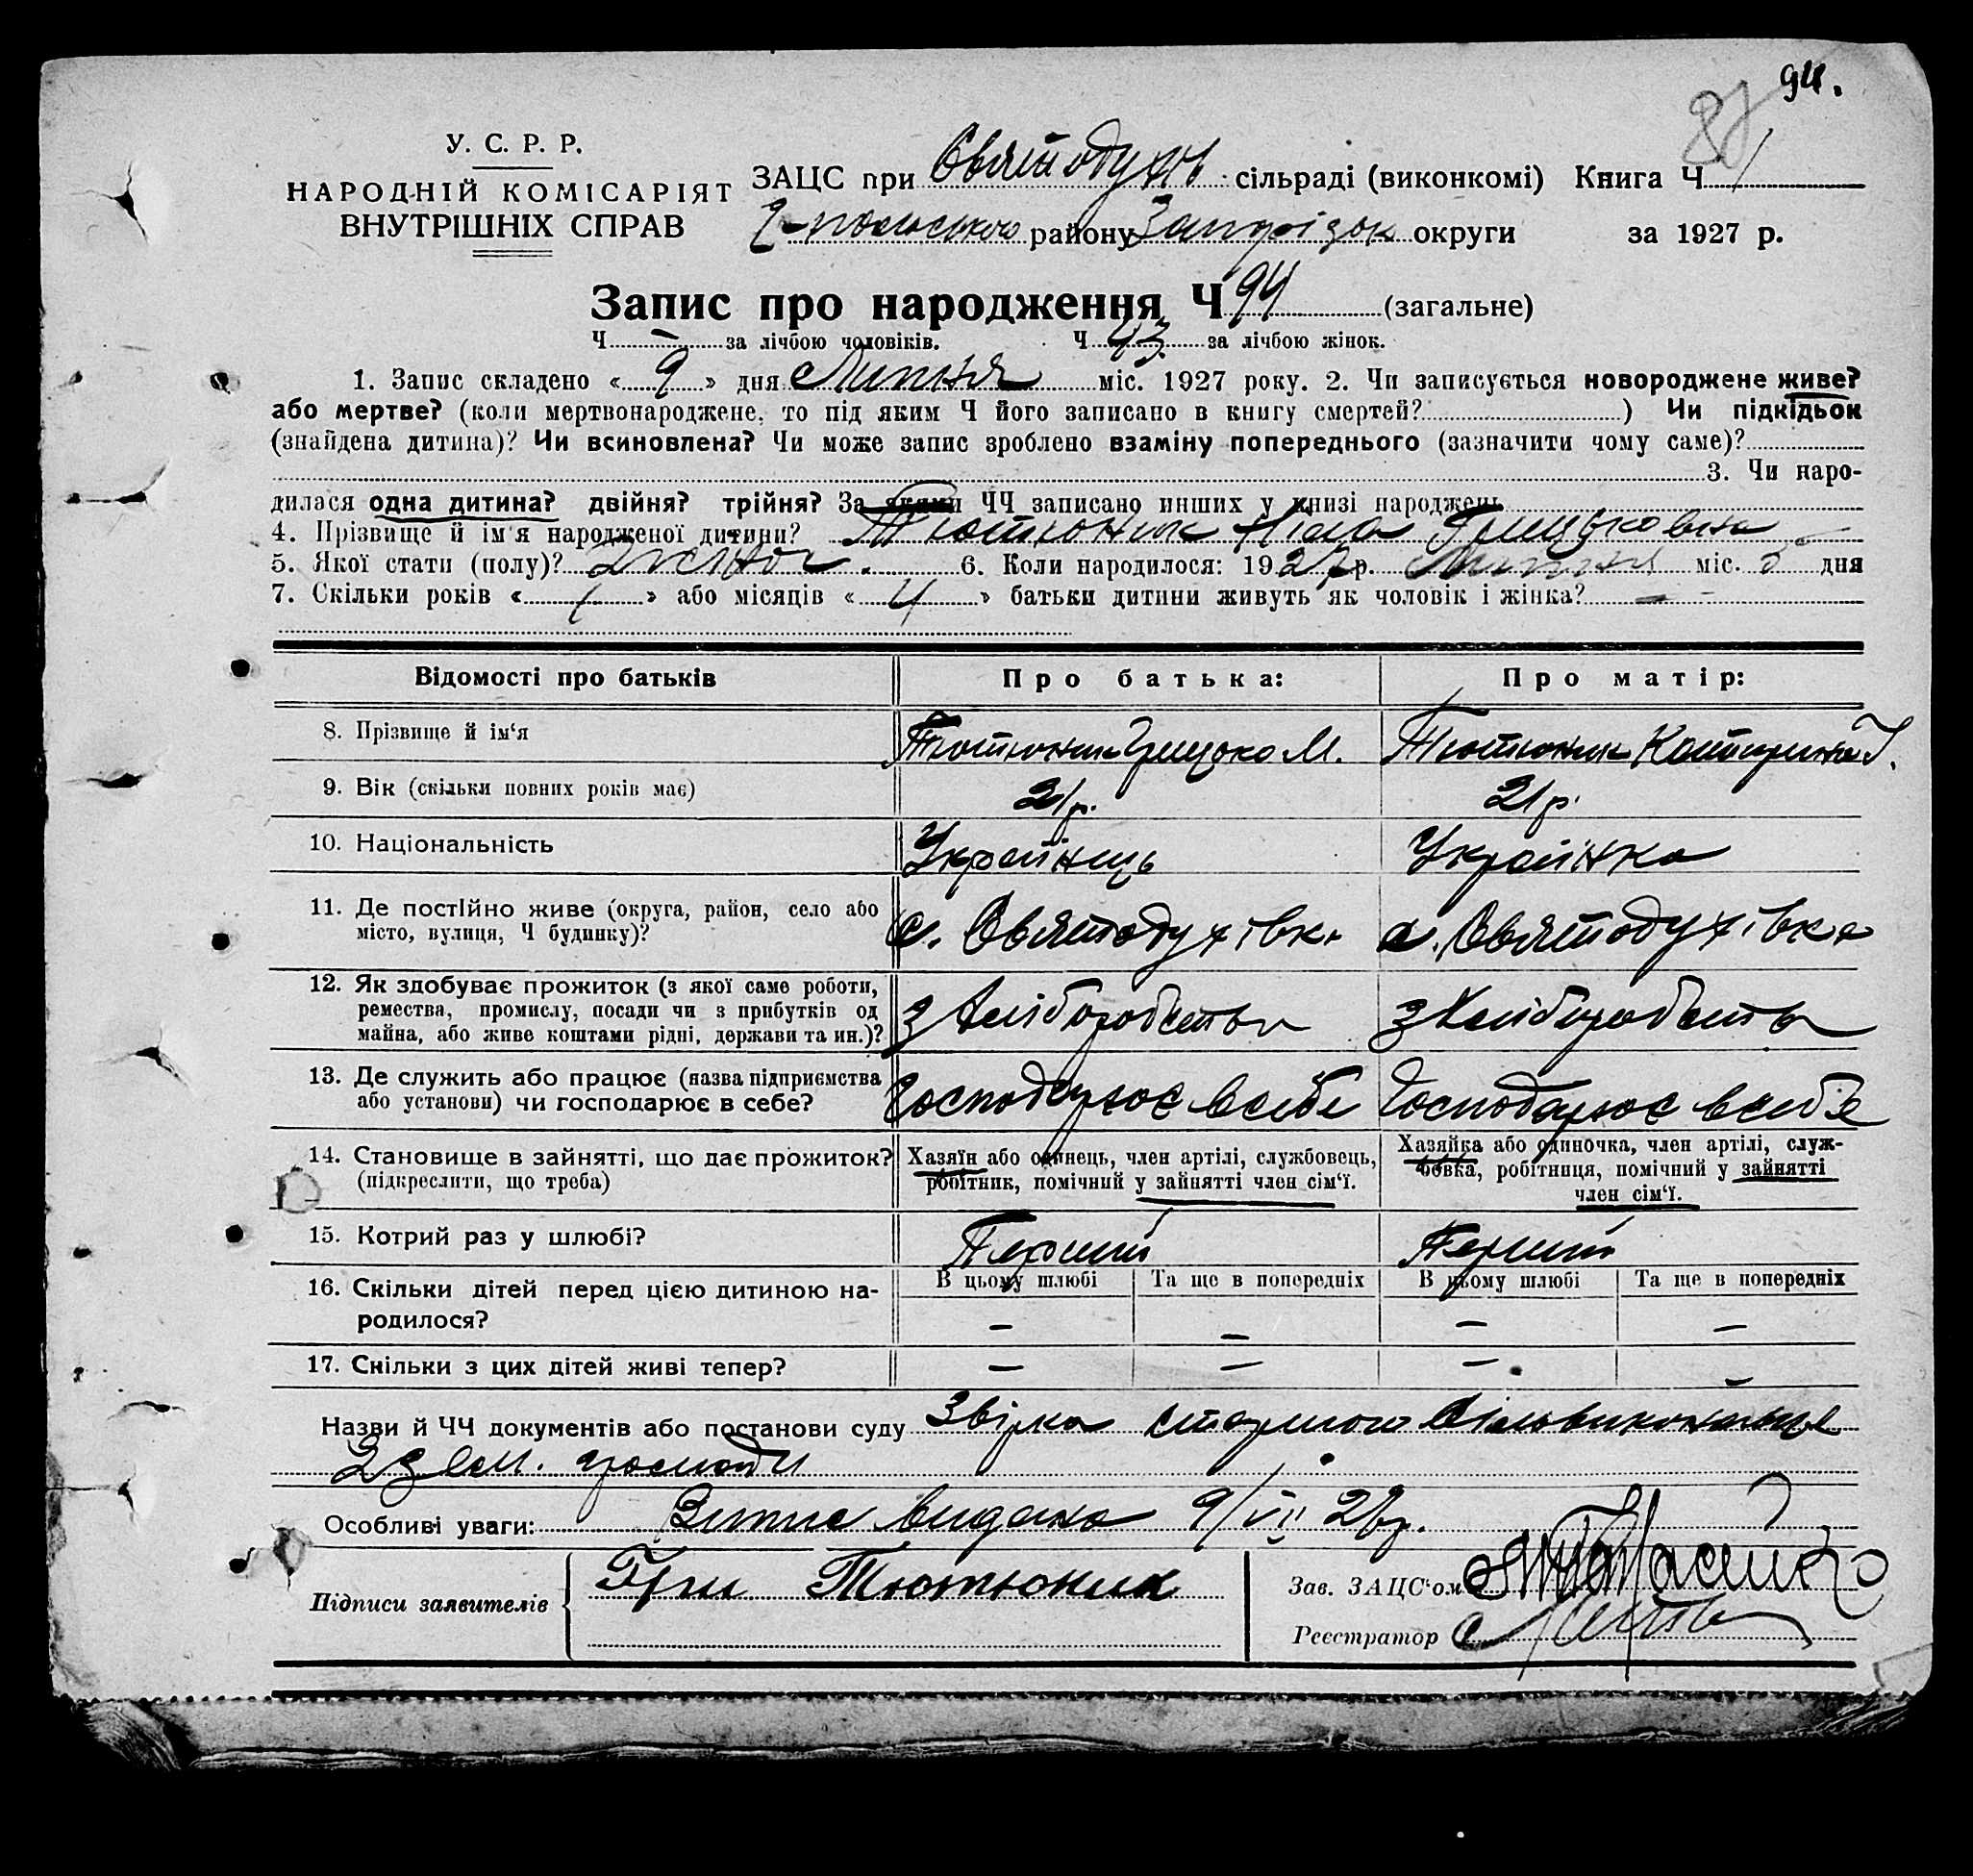 94.
87
У. С. Р. Р.
НАРОДНІЙ КОМІСАРІЯТ
ВНУТРІШНІХ СПРАВ
ЗАЦС при Святодухів сільраді (виконкомі) Книга Ч 1
району Запоріжк округи за 1927 р.
Запис про народження Ч 94 (загальне)
Ч — за лічбою чоловіків. Ч 43 за лічбою жінок.
1. Запис складено « 9 » дня Липня міс. 1927 року. 2. Чи записується новороджене живе?
або мертве? (коли мертвонароджене, то під яким Ч його записано в книгу смертей? ) Чи підкідьок
(знайдена дитина)? Чи всиновлена? Чи може запис зроблено взаміну попереднього (зазначити чому саме)?
3. Чи наро-
дилася одна дитина? двійня? трійня? За якими ЧЧ записано инших у книзі народжень
4. Прізвище й ім'я народженої дитини? Тютюник Ніна Грицьковна
5. Якої стати (полу)? жіноч. 6. Коли народилося: 1927 р. Липня міс. 5 дня
7. Скільки років « 1 » або місяців « 4 » батьки дитини живуть як чоловік і жінка? —
Відомості про батьків Про батька: Про матір:
8. Прізвище й ім'я Тютюник Грицько М. Тютюник Катирина І.
9. Вік (скільки повних років має) 21 р. 21 р.
10. Національність Українць Українка
11. Де постійно живе (округа, район, село або с. Святодухівка с. Святодухівка
місто, вулиця, Ч будинку)?
12. Як здобуває прожиток (з якої саме роботи,
ремества, промислу, посади чи з прибутків од з Хліборобства з Хліборобства
майна, або живе коштами рідні, держави та ин.)?
13. Де служить або працює (назва підприємства Господарює в себе Господарює в себе
або установи) чи господарює в себе?
14. Становище в зайнятті, що дає прожиток? Хазяїн або одинець, член артілі, службовець, Хазяйка або одиночка, член артілі, служ-
(підкреслити, що треба) робітник, помічний у зайнятті член сім'ї. бовка, робітниця, помічний у зайнятті
член сім'ї.
15. Котрий раз у шлюбі? Перший Перший
16. Скільки дітей перед цією дитиною на- В цьому шлюбі Та ще в попередніх В цьому шлюбі Та ще в попередніх
родилося? — — — —
17. Скільки з цих дітей живі тепер? — — — —
Назви й ЧЧ документів або постанови суду Звірка старшого Сільвиконавця
2 зем. громади
Особливі уваги: Витяг видано 9/VII 27 р.
Підписи заявителів Гри Тютюник Зав. ЗАЦС'ом
Реєстратор